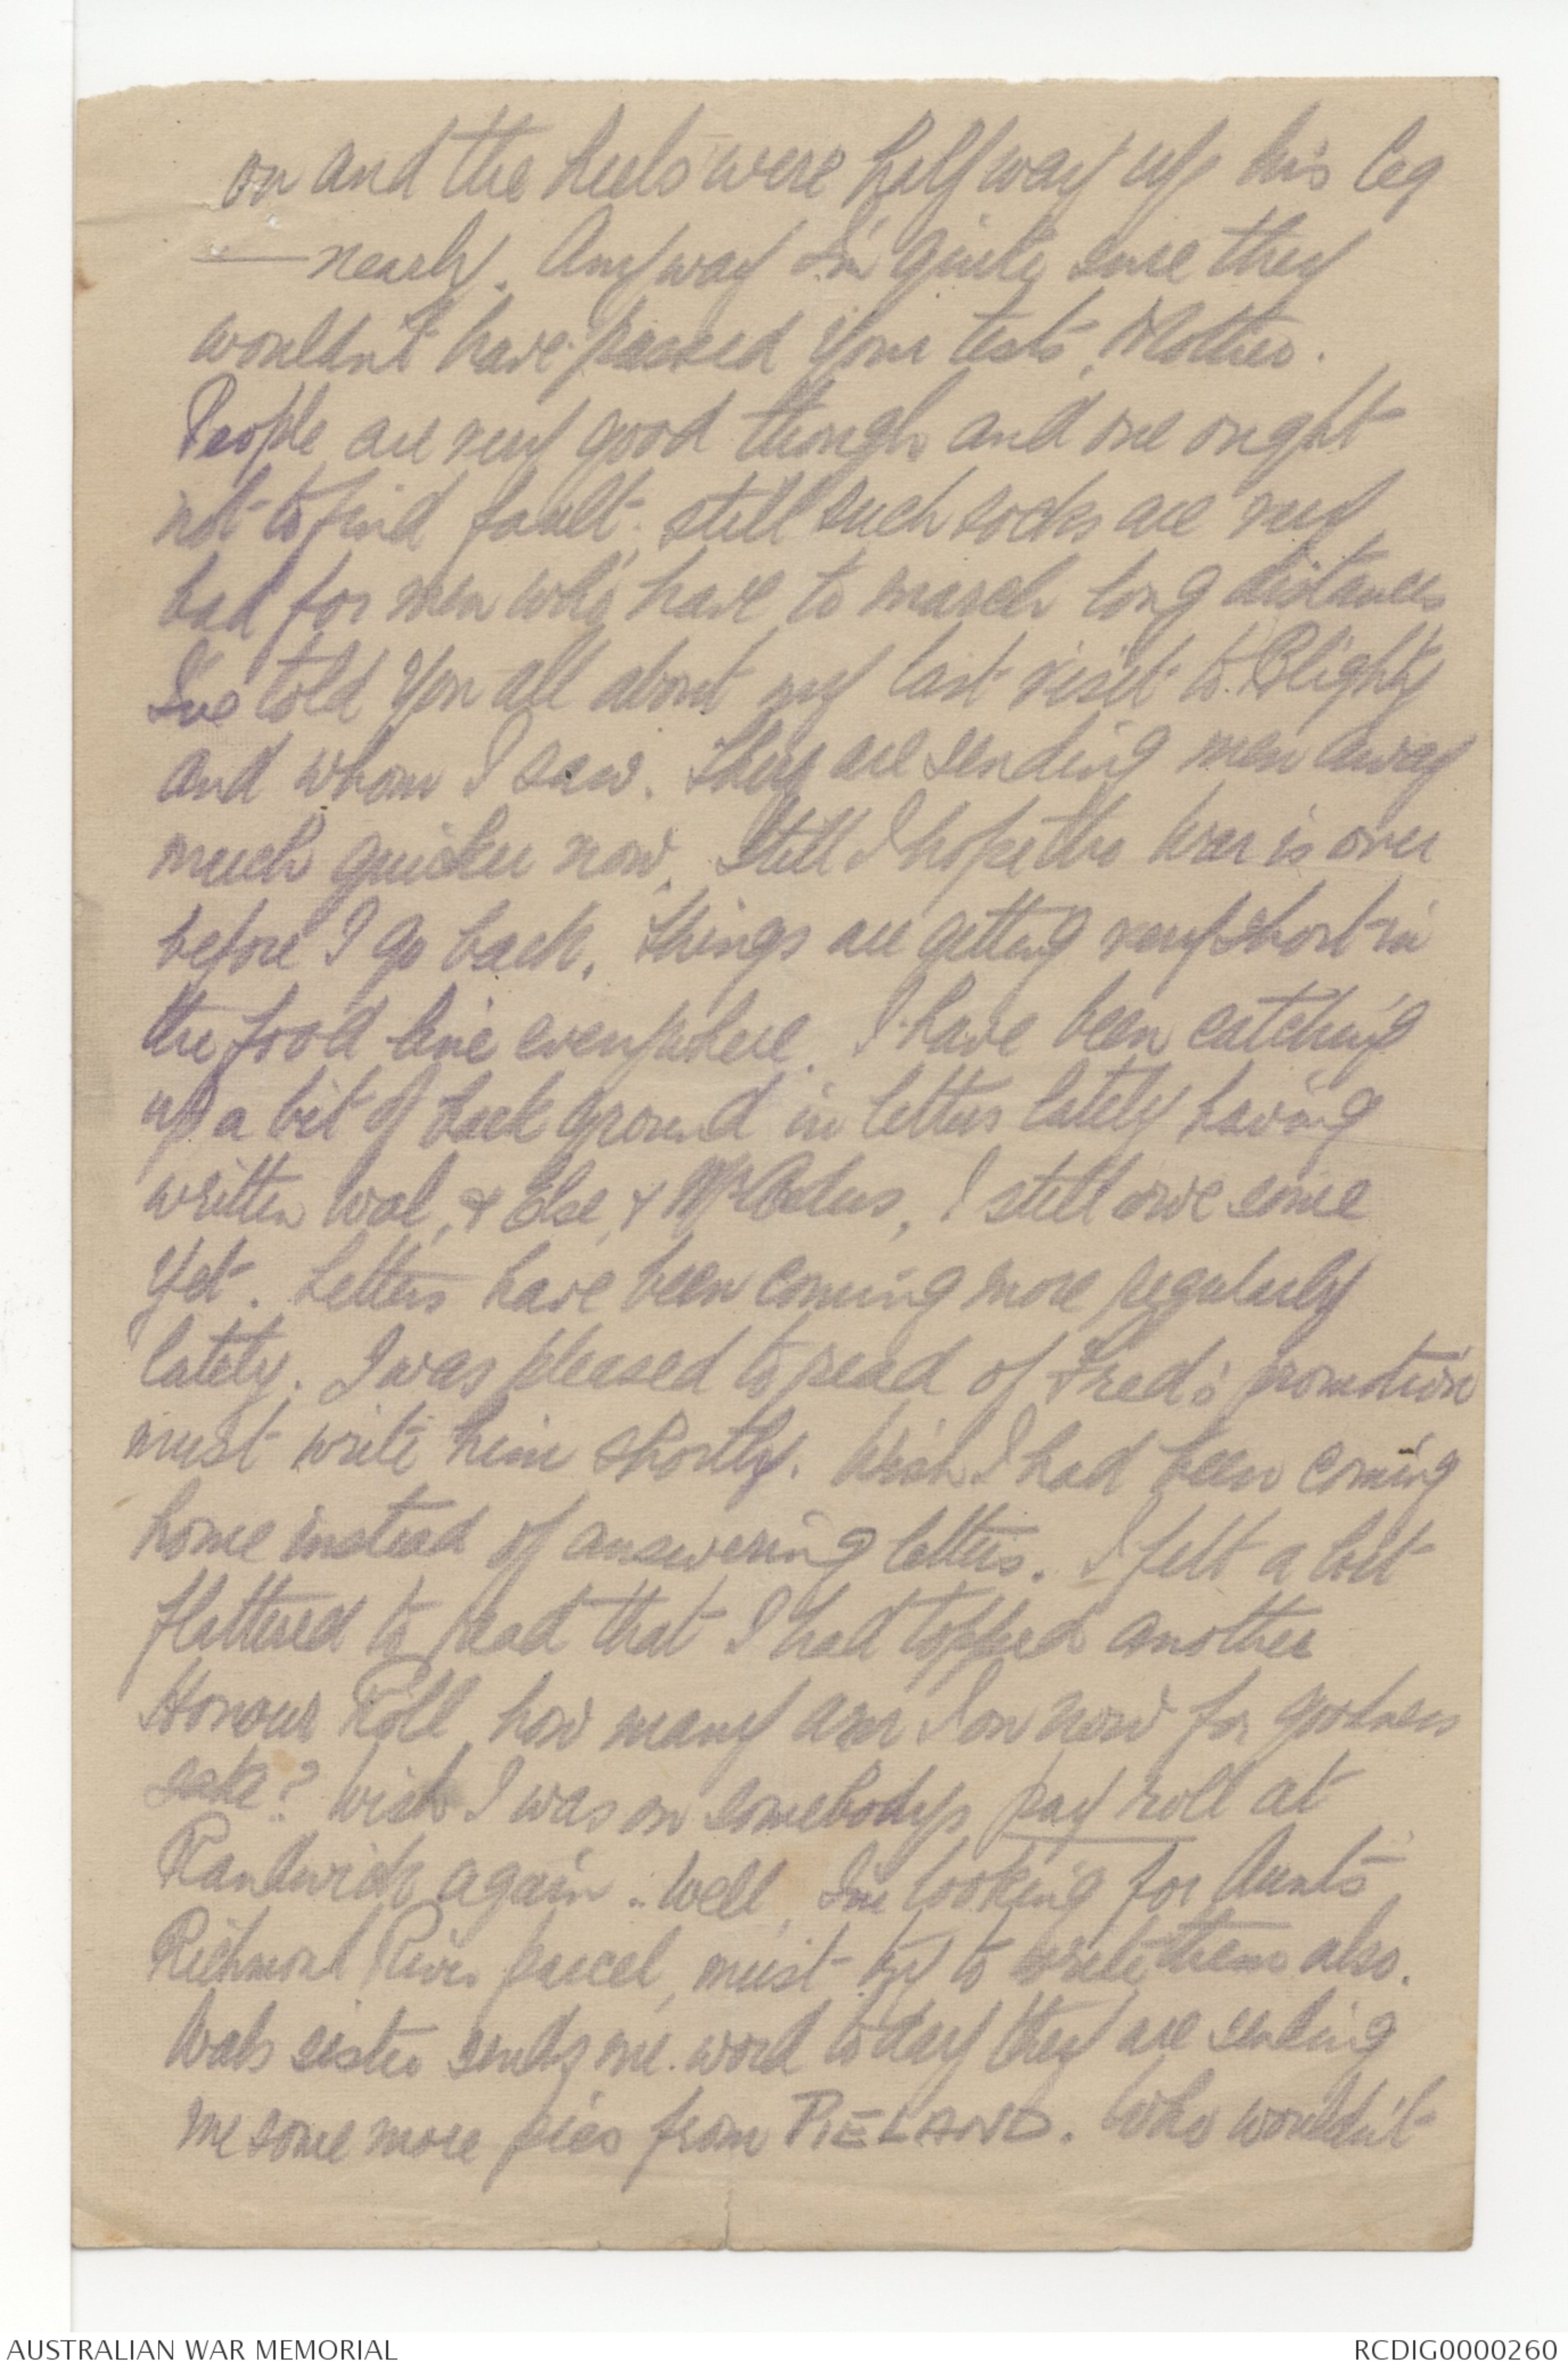 on and the heels were half way up his leg
— nearly. Anyway I'm quite sure they
wouldn't have passed your tests, Mother.
People are very good though and one ought
not to find fault, still such socks are very
bad for men who have to march long distances
I've told you all about my last visit to Blighty
and whom I saw. They are sending men away
much quicker now. Still I hope the war is over
before I go back. Things are getting very short in
the food line everywhere. I have been catching
up a bit of back ground in letters lately having
written Wal, & Else, & Mr. I still owe some
yet. Letters have been coming more regularly
lately. I was pleased to read of Fred's promotion
must write him shortly. Wish I had been coming
home instead of answering letters. I felt a bit
flattered to read that I had topped another
Honour Roll, how many am I on now for goodness
sake? Wish I was on somebodys pay roll at
Randwick again. Well, I'm looking for Aunts
Richmond River parcel, must try to write them also.
Wals sister sends me word today they are sending
me some more pies from PIELAND. Who wouldn't
AUSTRALIAN WAR MEMORIAL
RCDIG0000260